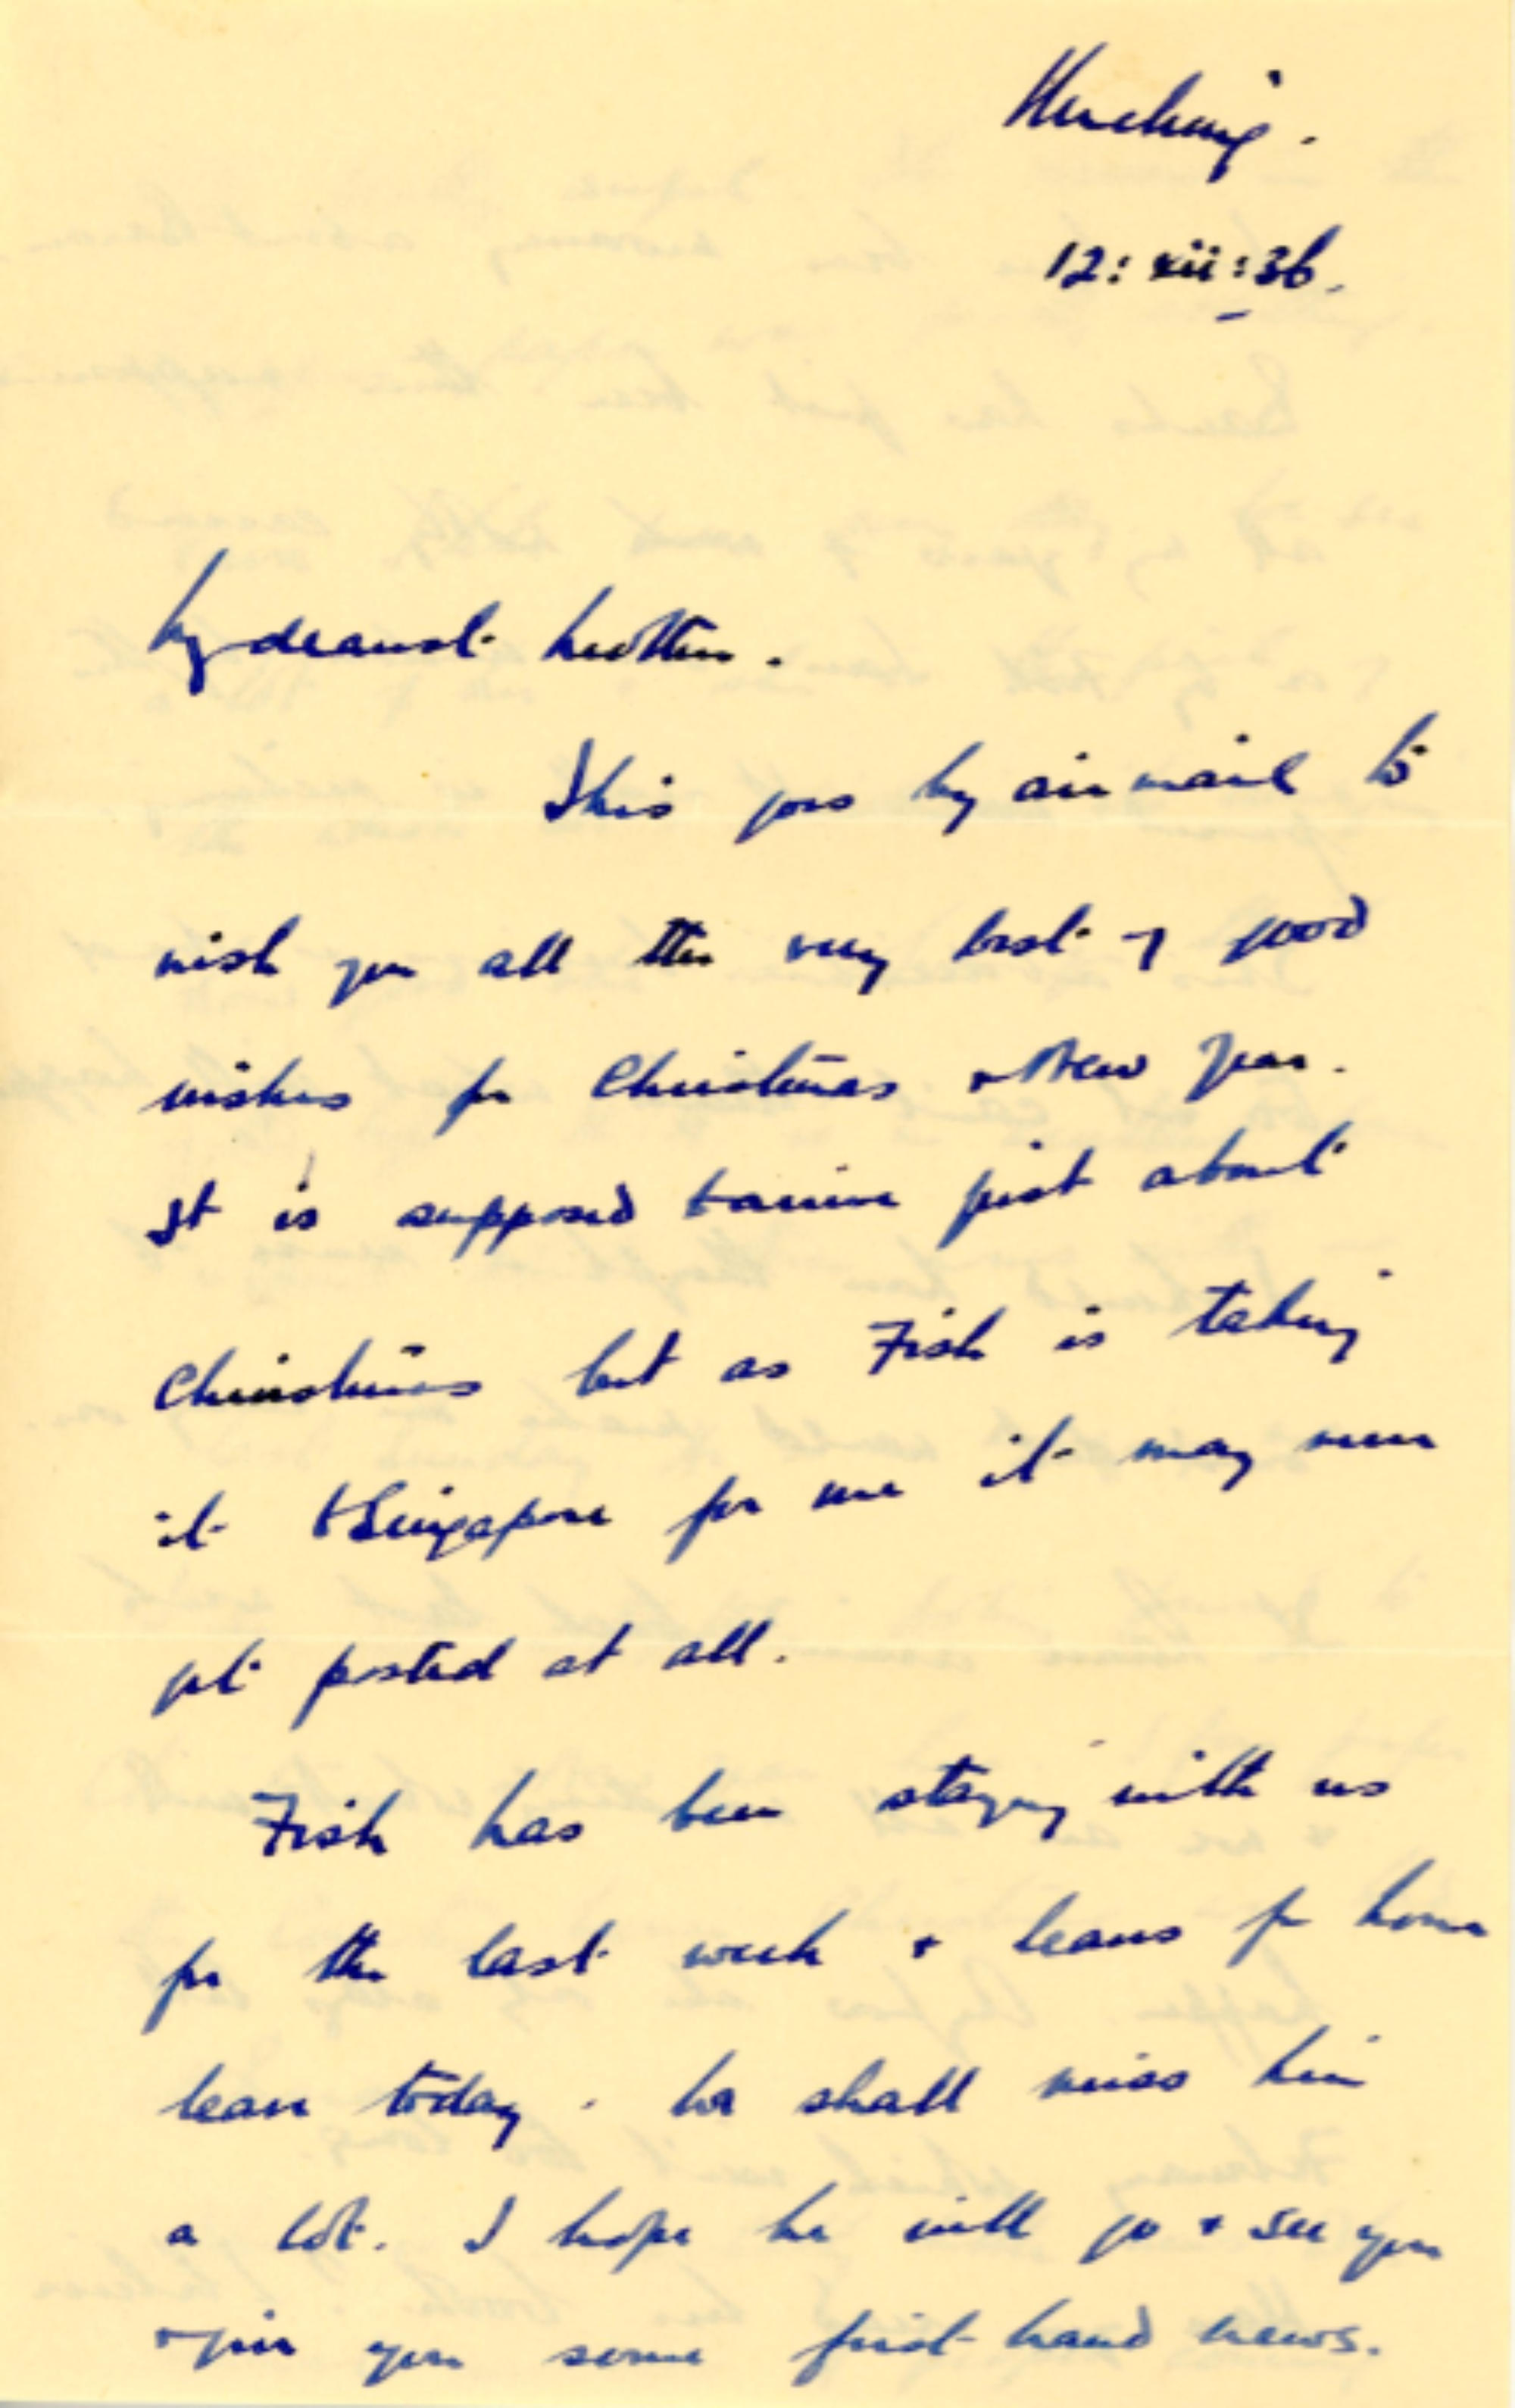 12: xii: 36.
My dearest Mother.
This goes by air mail to
wish you all the very best of good
wishes for Christmas & New Year.
It is supposed to arrive just about
Christmas but as Fish is taking
it to Singapore for me it may never
get posted at all.
Fish has been staying with us
for the last week & leaves for home
leave today. We shall miss him
a lot. I hope he will go & see you
& give you some first hand news.